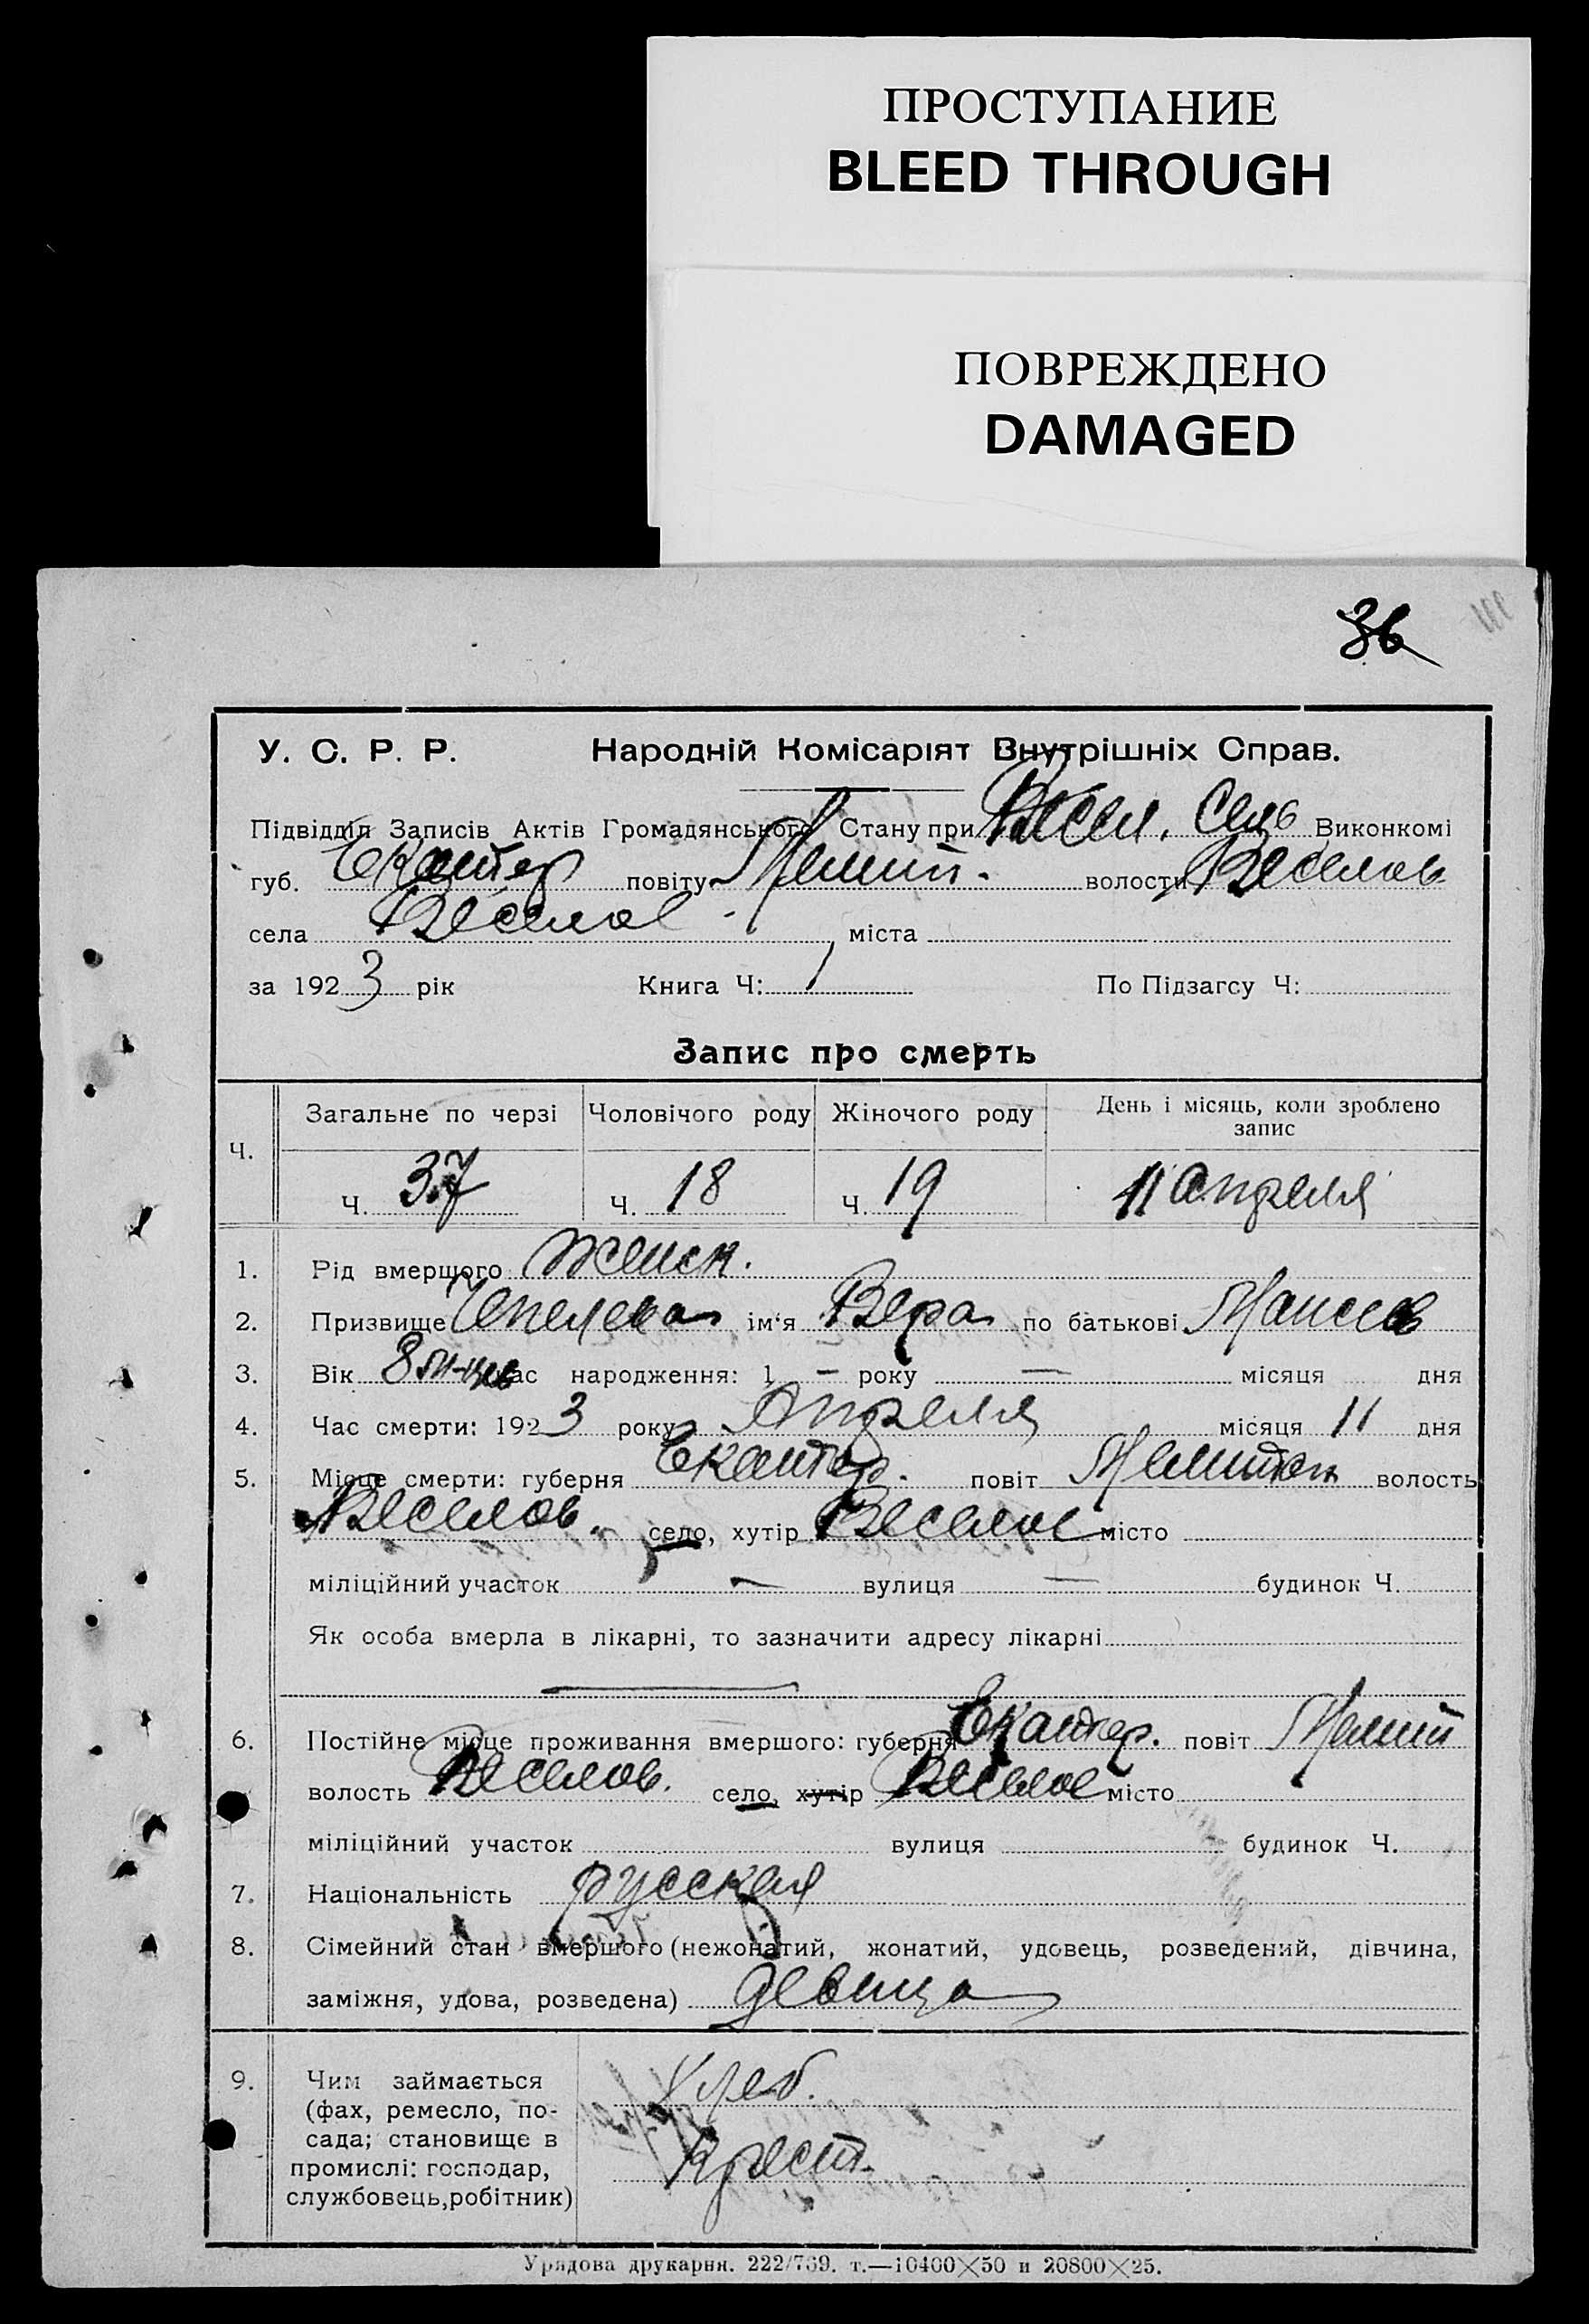 ПРОСТУПАНИЕ
BLEED THROUGH
ПОВРЕЖДЕНО
DAMAGED
36
У. С. Р. Р. Народній Комісаріят Внутрішніх Справ.
Підвідділ Записів Актів Громадянського Стану при Весел. Сель Виконкомі
губ. Екатер повіту Мелит. волости Веселов
села Веселое міста
за 1923 рік Книга Ч: 1 По Підзагсу Ч:
Запис про смерть
Ч. Загальне по черзі Чоловічого роду Жіночого роду День і місяць, коли зроблено запис
Ч. 37 Ч. 18 Ч. 19 11 Апреля
1. Рід вмершого Женск.
2. Призвище Чепелева ім'я Вера по батькові
3. Вік 8 м-цев час народження: 1 — року — місяця дня
4. Час смерти: 1923 року Апреля місяця 11 дня
5. Місце смерти: губерня Екатер. повіт Мелитоп волость
Веселов. село, хутір Веселое місто
міліційний участок — вулиця — будинок Ч.
Як особа вмерла в лікарні, то зазначити адресу лікарні
6. Постійне місце проживання вмершого: губерня Екатер. повіт Мелит
волость Веселов. село, хутір Веселое місто
міліційний участок вулиця будинок Ч.
7. Національність русская
8. Сімейний стан вмершого (нежонатий, жонатий, удовець, розведений, дівчина,
заміжня, удова, розведена) девица
9. Чим займається Хлеб.
(фах, ремесло, по-
сада; становище в Крест.
промислі: господар,
службовець, робітник)
Урядова друкарня. 222/769. т.—10400×50 и 20800×25.